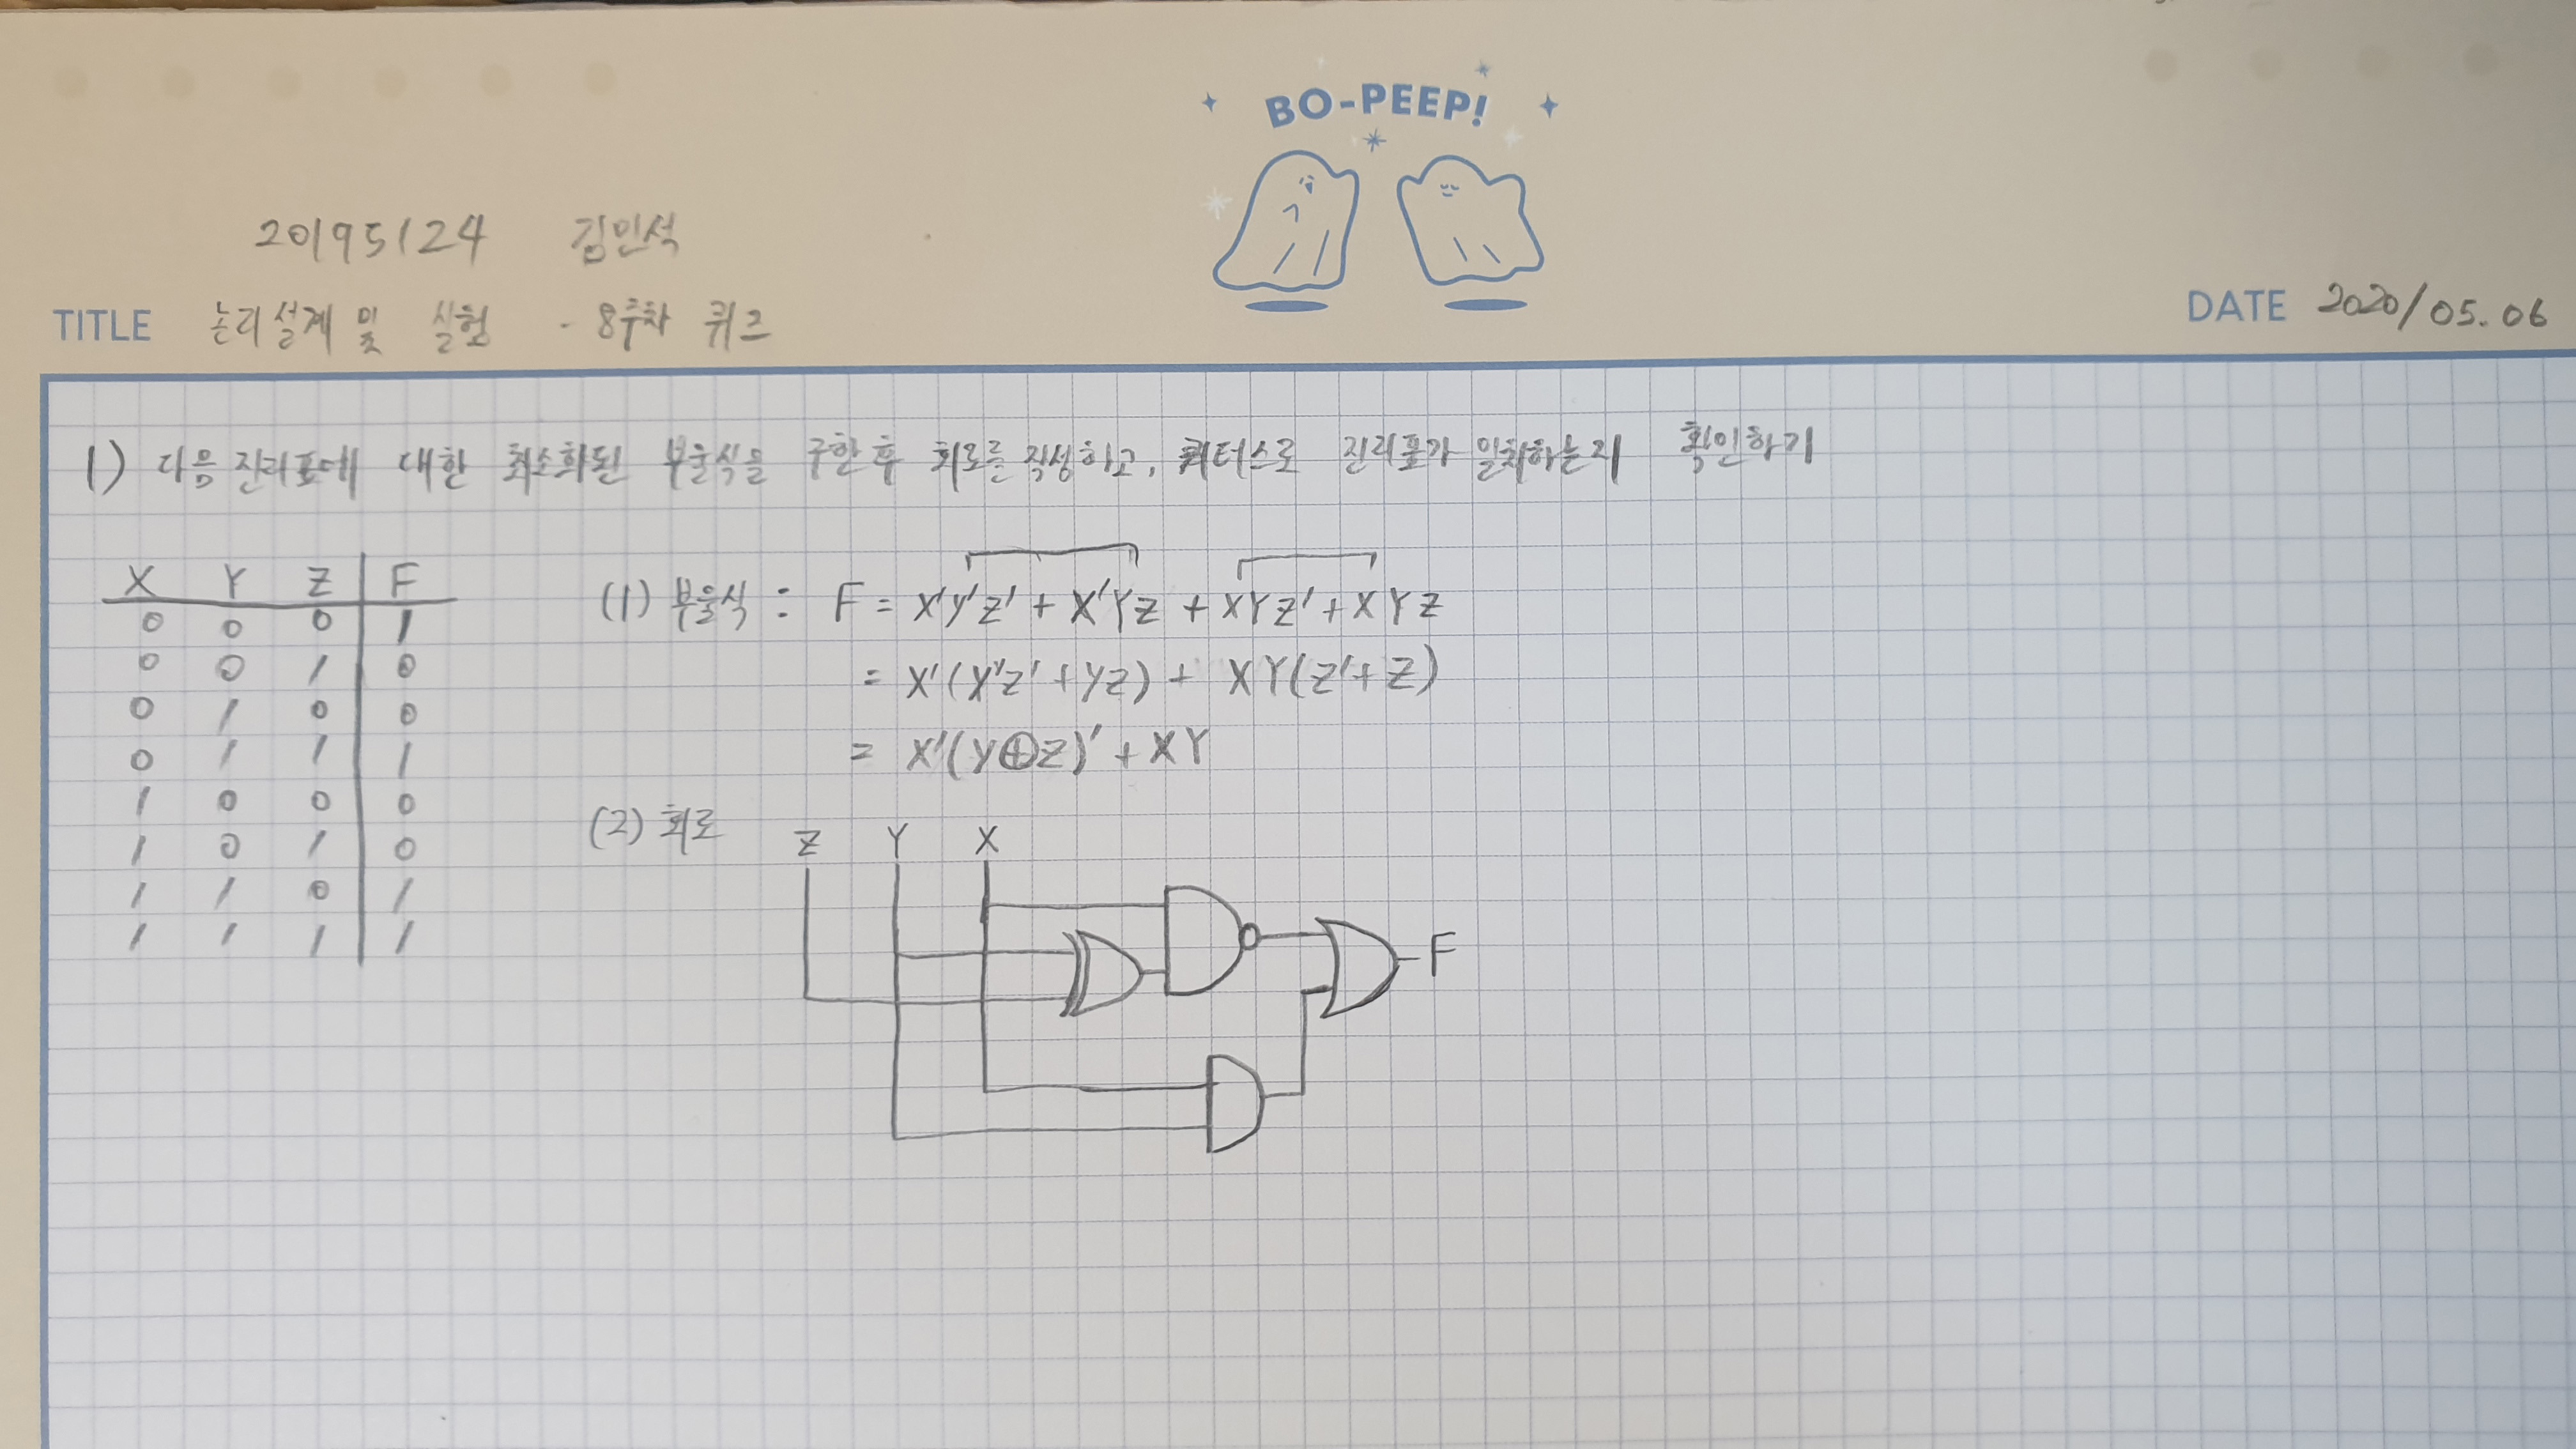 BO-PEEP!
20195124 김민석
TITLE 논리설계 및 실험 - 8주차 퀴즈
DATE 2020/05.06
1) 다음 진리표에 대한 최소화된 부울식을 구한 후 회로를 작성하고, 쿼터스로 진리표가 일치하는지 확인하기
X Y Z F
0 0 0 1
0 0 1 0
0 1 0 0
0 1 1 1
1 0 0 0
1 0 1 0
1 1 0 1
1 1 1 1
(1) 부울식 : F = X'Y'Z' + X'YZ + XYZ' + XYZ
= X'(Y'Z' + YZ) + XY(Z'+Z)
= X'(Y⊕Z)' + XY
(2) 회로
Z Y X
F